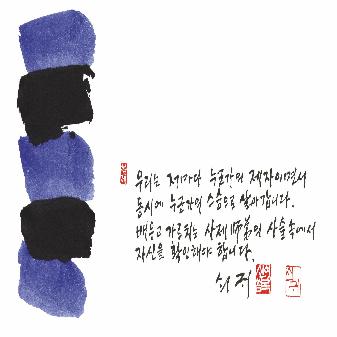 우리는 제각다 누군가의 제자이면서
동시에 누군가의 스승으로 살아갑니다.
배우고 가르치는 사제師弟의 사슬속에서
자신을 확인해야 합니다.
쇠귀